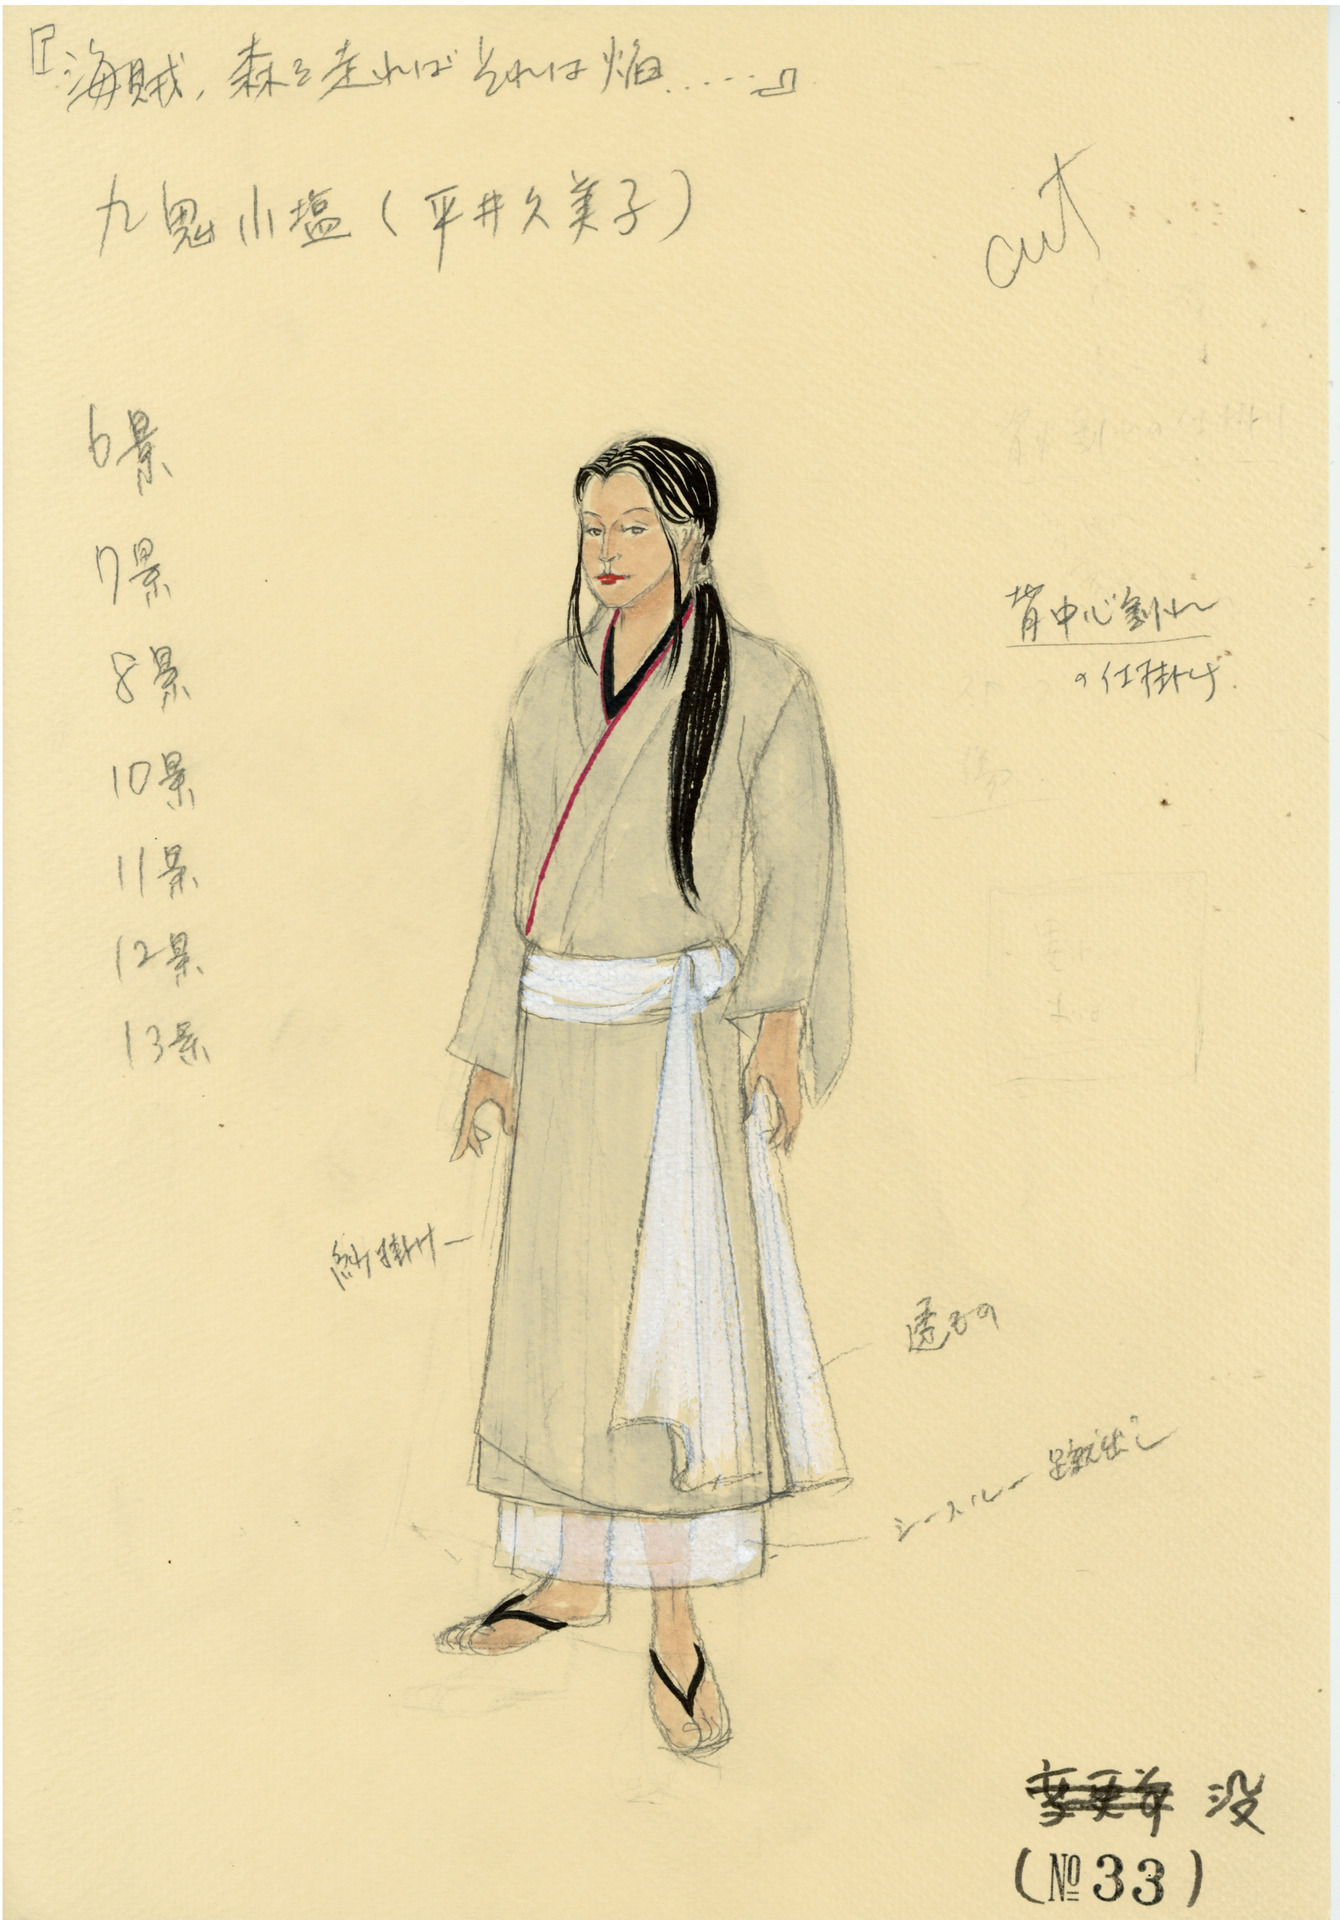 『海賊、森を走ればそれは焔……』
九鬼小塩(平井久美子)
cut
6景
7景
8景
10景
11景
12景
13景
背中心割れ
の仕掛け
紗掛け
透もの
シースルー蹴出し
変更前 没
(№33)